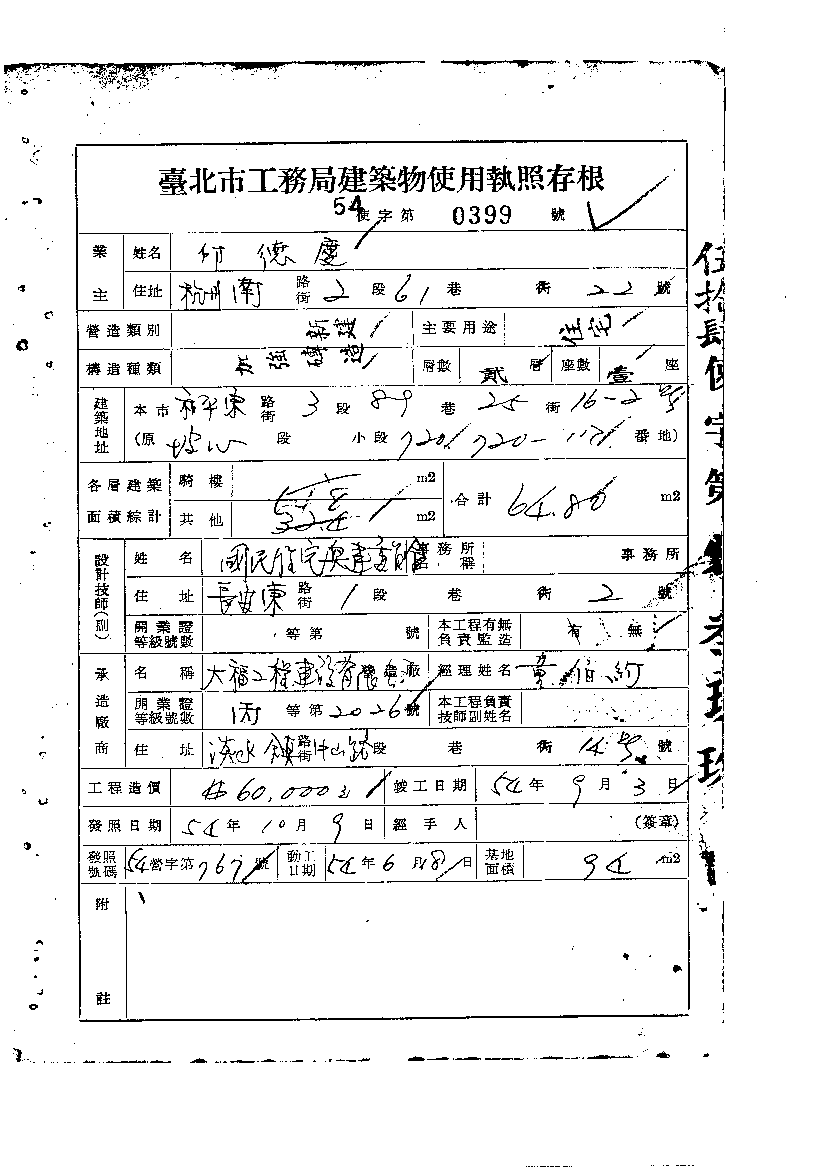 臺北市工務局建築物使用執照存根
54使字第 0399 號
業主 姓名 何德慶
住址 杭州南 路街 2 段 61 巷 街 22 號
營造類別 新建 主要用途 住宅
構造種類 加強磚造 層數 貳 層 座數 壹 座
建築地址 本市 和平東 路街 3 段 89 巷 25 街 16-2 號
(原 段 小段 720 番地)
各層建築面積綜計 騎樓 m2 合計 64.80 m2
其他 m2
設計技師(副) 姓名 國民住宅興建 事務所名稱 事務所
住址 長安東 路街 1 段 巷 街 2 號
開業證等級號數 等第 號 本工程有無負責監造 有 無
承造廠商 名稱 大福工程建設有限公司 營造廠 經理姓名 黃伯
開業證等級號數 丙 等第 2026 號 本工程負責技師副姓名
住址 淡水鎮中山路 路街 段 巷 街 14號 號
工程造價 $60,000元 竣工日期 54年 9月 3日
發照日期 54年 10月 9日 經手人 (簽章)
發照號碼 54營字第 767 號 動工日期 54年 6月 18日 基地面積 94 m2
附註
伍拾肆使字第